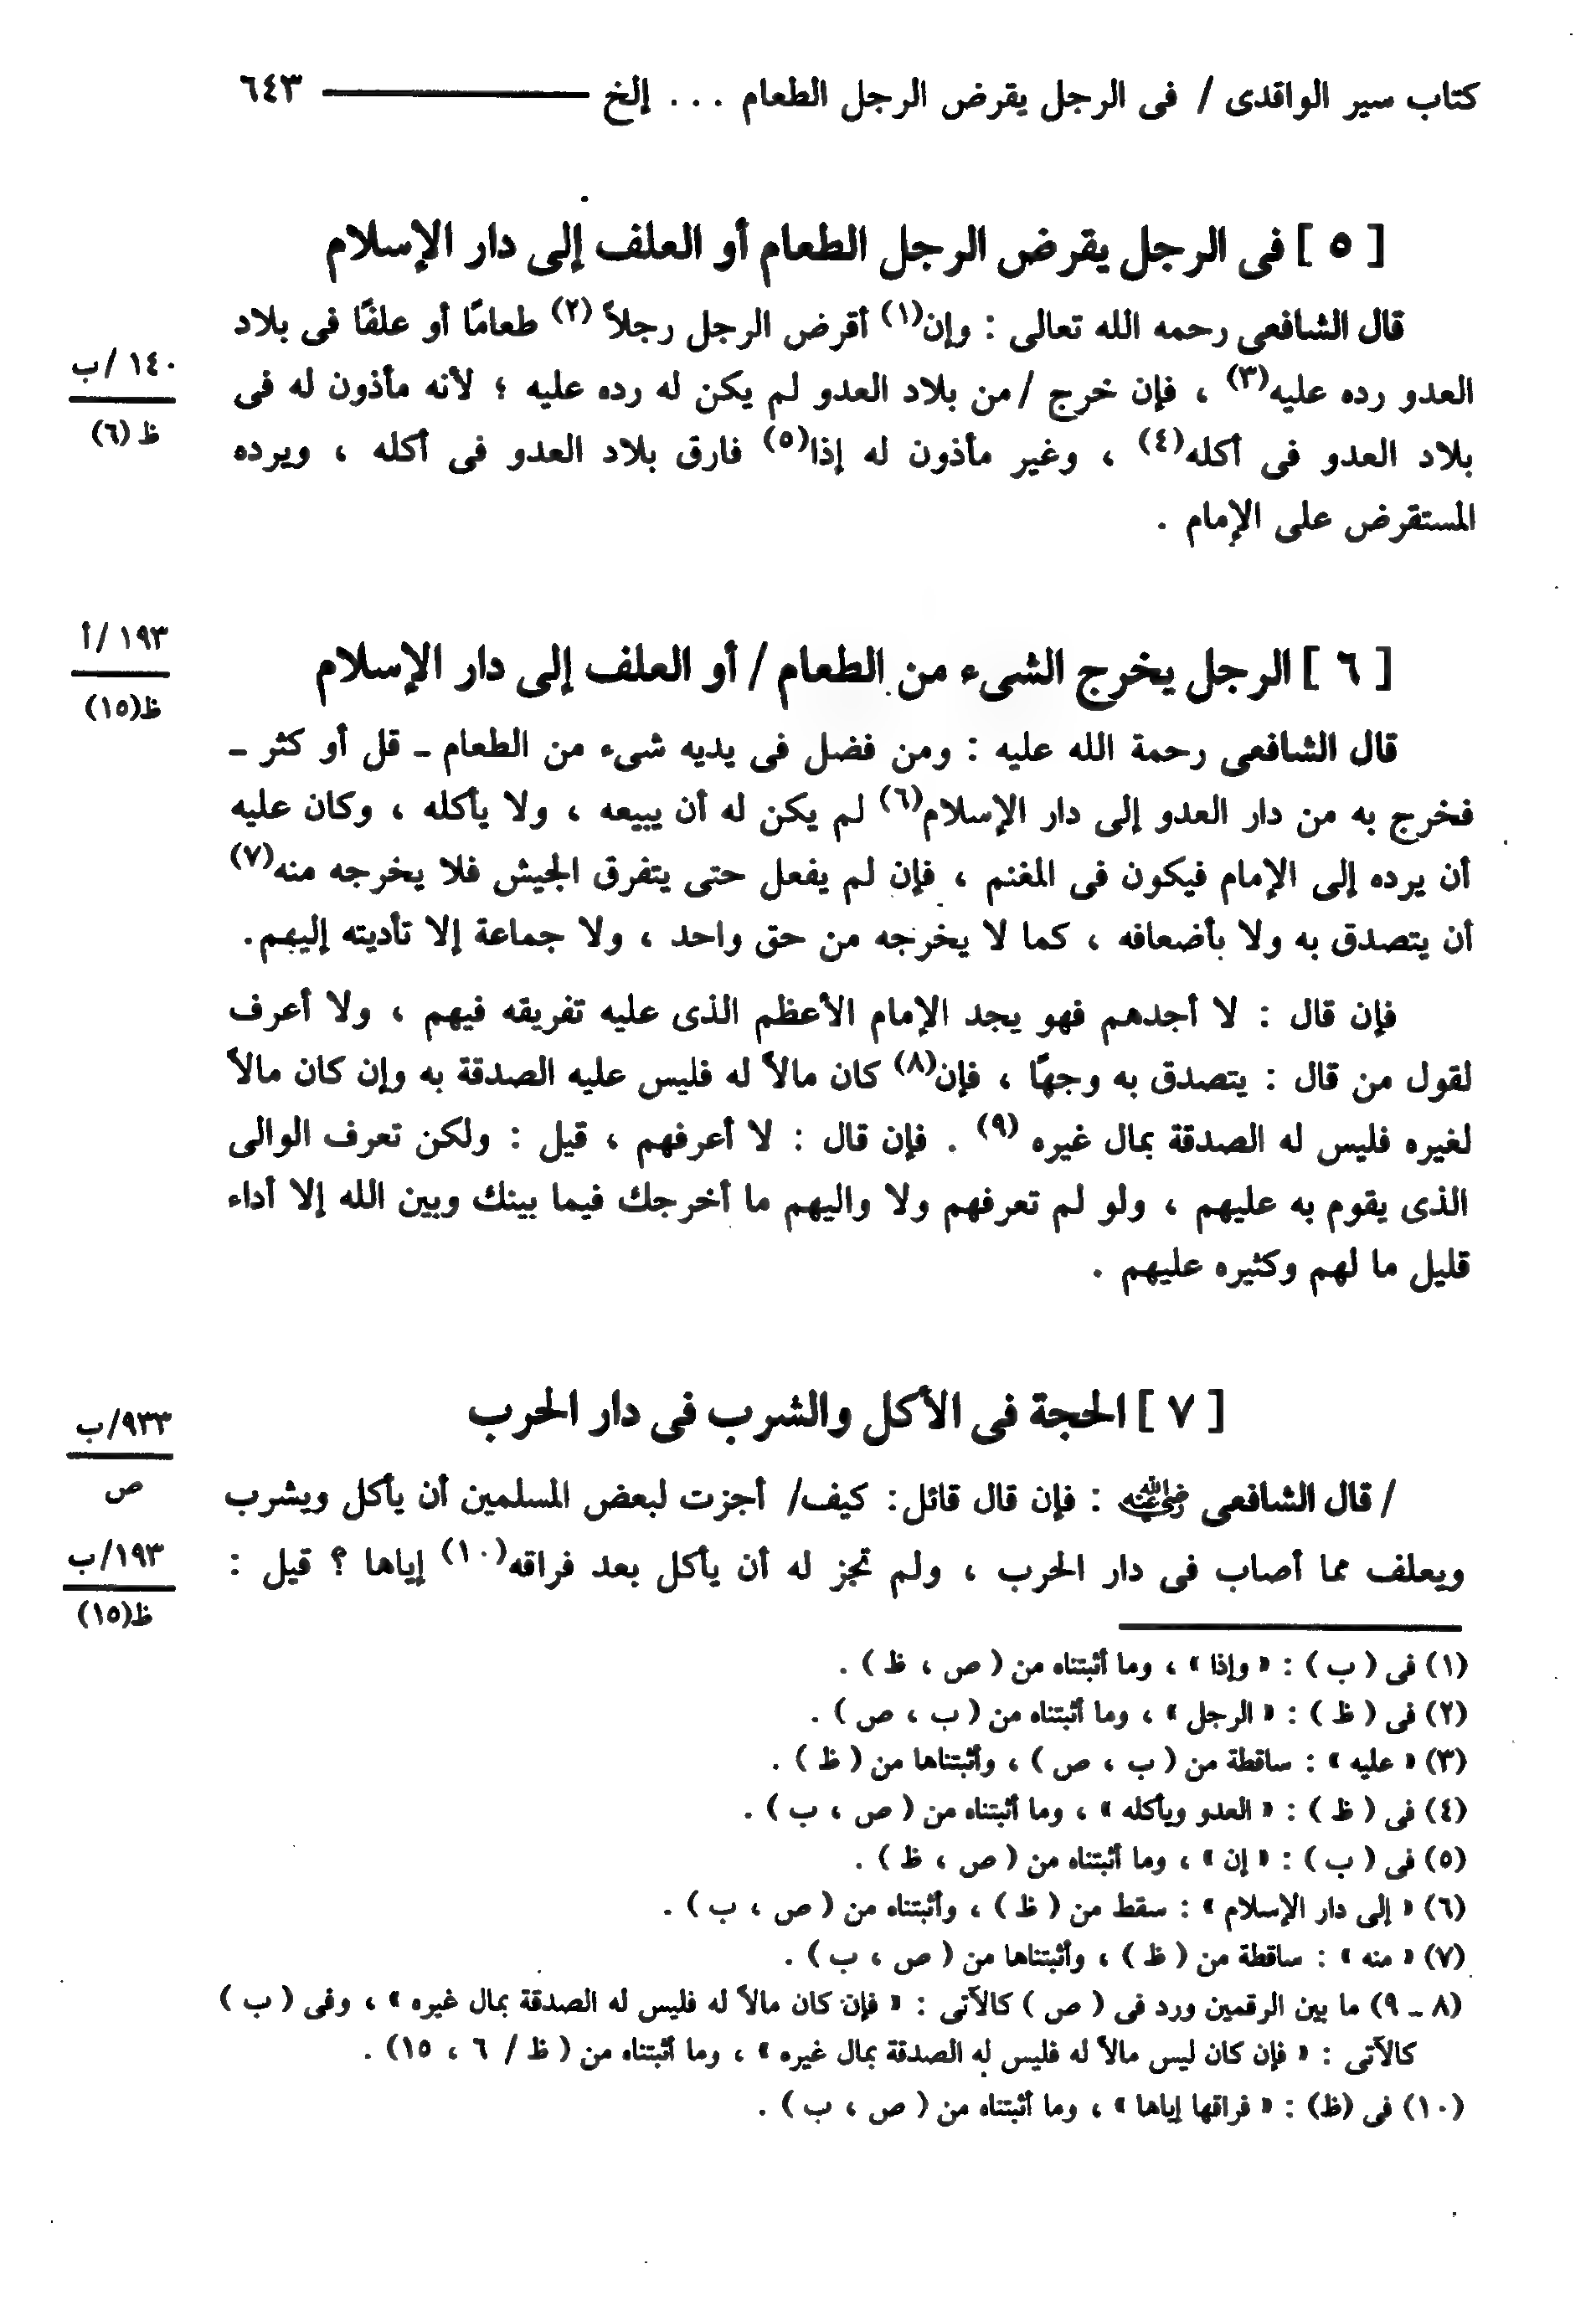 كتاب سير الواقدى / فى الرجل يقرض الرجل الطعام ... إلخ ٦٤٣
[ ٥ ] فى الرجل يقرض الرجل الطعام أو العلف إلى دار الإسلام
قال الشافعى رحمه الله تعالى : وإن(١) أقرض الرجل رجلاً (٢) طعامًا أو علفًا فى بلاد
العدو رده عليه(٣) ، فإن خرج / من بلاد العدو لم يكن له رده عليه ؛ لأنه مأذون له فى
١٤٠ /ب
ظ (٦)
بلاد العدو فى أكله(٤) ، وغير مأذون له إذا(٥) فارق بلاد العدو فى أكله ، ويرده
المستقرض على الإمام .
[ ٦ ] الرجل يخرج الشىء من الطعام / أو العلف إلى دار الإسلام
١٩٣ /أ
ظ(١٥)
قال الشافعى رحمة الله عليه : ومن فضل فى يديه شىء من الطعام ـ قل أو كثر ـ
فخرج به من دار العدو إلى دار الإسلام(٦) لم يكن له أن يبيعه ، ولا يأكله ، وكان عليه
أن يرده إلى الإمام فيكون فى المغنم ، فإن لم يفعل حتى يتفرق الجيش فلا يخرجه منه(٧)
أن يتصدق به ولا بأضعافه ، كما لا يخرجه من حق واحد ، ولا جماعة إلا تأديته إليهم.
فإن قال : لا أجدهم فهو يجد الإمام الأعظم الذى عليه تفريقه فيهم ، ولا أعرف
لقول من قال : يتصدق به وجهًا ، فإن(٨) كان مالاً له فليس عليه الصدقة به وإن كان مالاً
لغيره فليس له الصدقة بمال غيره (٩) . فإن قال : لا أعرفهم ، قيل : ولكن تعرف الوالى
الذى يقوم به عليهم ، ولو لم تعرفهم ولا واليهم ما أخرجك فيما بينك وبين الله إلا أداء
قليل ما لهم وكثيره عليهم .
[ ٧ ] الحجة فى الأكل والشرب فى دار الحرب
٩٣٣/ب
ص
/ قال الشافعى رضي الله عنه : فإن قال قائل: كيف/ أجزت لبعض المسلمين أن يأكل ويشرب
١٩٣/ب
ظ(١٥)
ويعلف مما أصاب فى دار الحرب ، ولم تجز له أن يأكل بعد فراقه(١٠) إياها ؟ قيل :
(١) فى ( ب ) : « وإذا » ، وما أثبتناه من ( ص ، ظ ) .
(٢) فى ( ظ ) : « الرجل » ، وما أثبتناه من ( ب ، ص ) .
(٣) « عليه » : ساقطة من ( ب ، ص ) ، وأثبتناها من ( ظ ) .
(٤) فى ( ظ ) : « العدو ويأكله » ، وما أثبتناه من ( ص ، ب ) .
(٥) فى ( ب ) : « إن » ، وما أثبتناه من ( ص ، ظ ) .
(٦) « إلى دار الإسلام » : سقط من ( ظ ) ، وأثبتناه من ( ص ، ب ) .
(٧) « منه » : ساقطة من ( ظ ) ، وأثبتناها من ( ص ، ب ) .
(٨ ـ ٩) ما بين الرقمين ورد فى ( ص ) كالآتى : « فإن كان مالاً له فليس له الصدقة بمال غيره » ، وفى ( ب )
كالآتى : « فإن كان ليس مالاً له فليس له الصدقة بمال غيره » ، وما أثبتناه من ( ظ / ٦ ، ١٥) .
(١٠) فى (ظ) : « فراقها إياها » ، وما أثبتناه من ( ص ، ب ) .